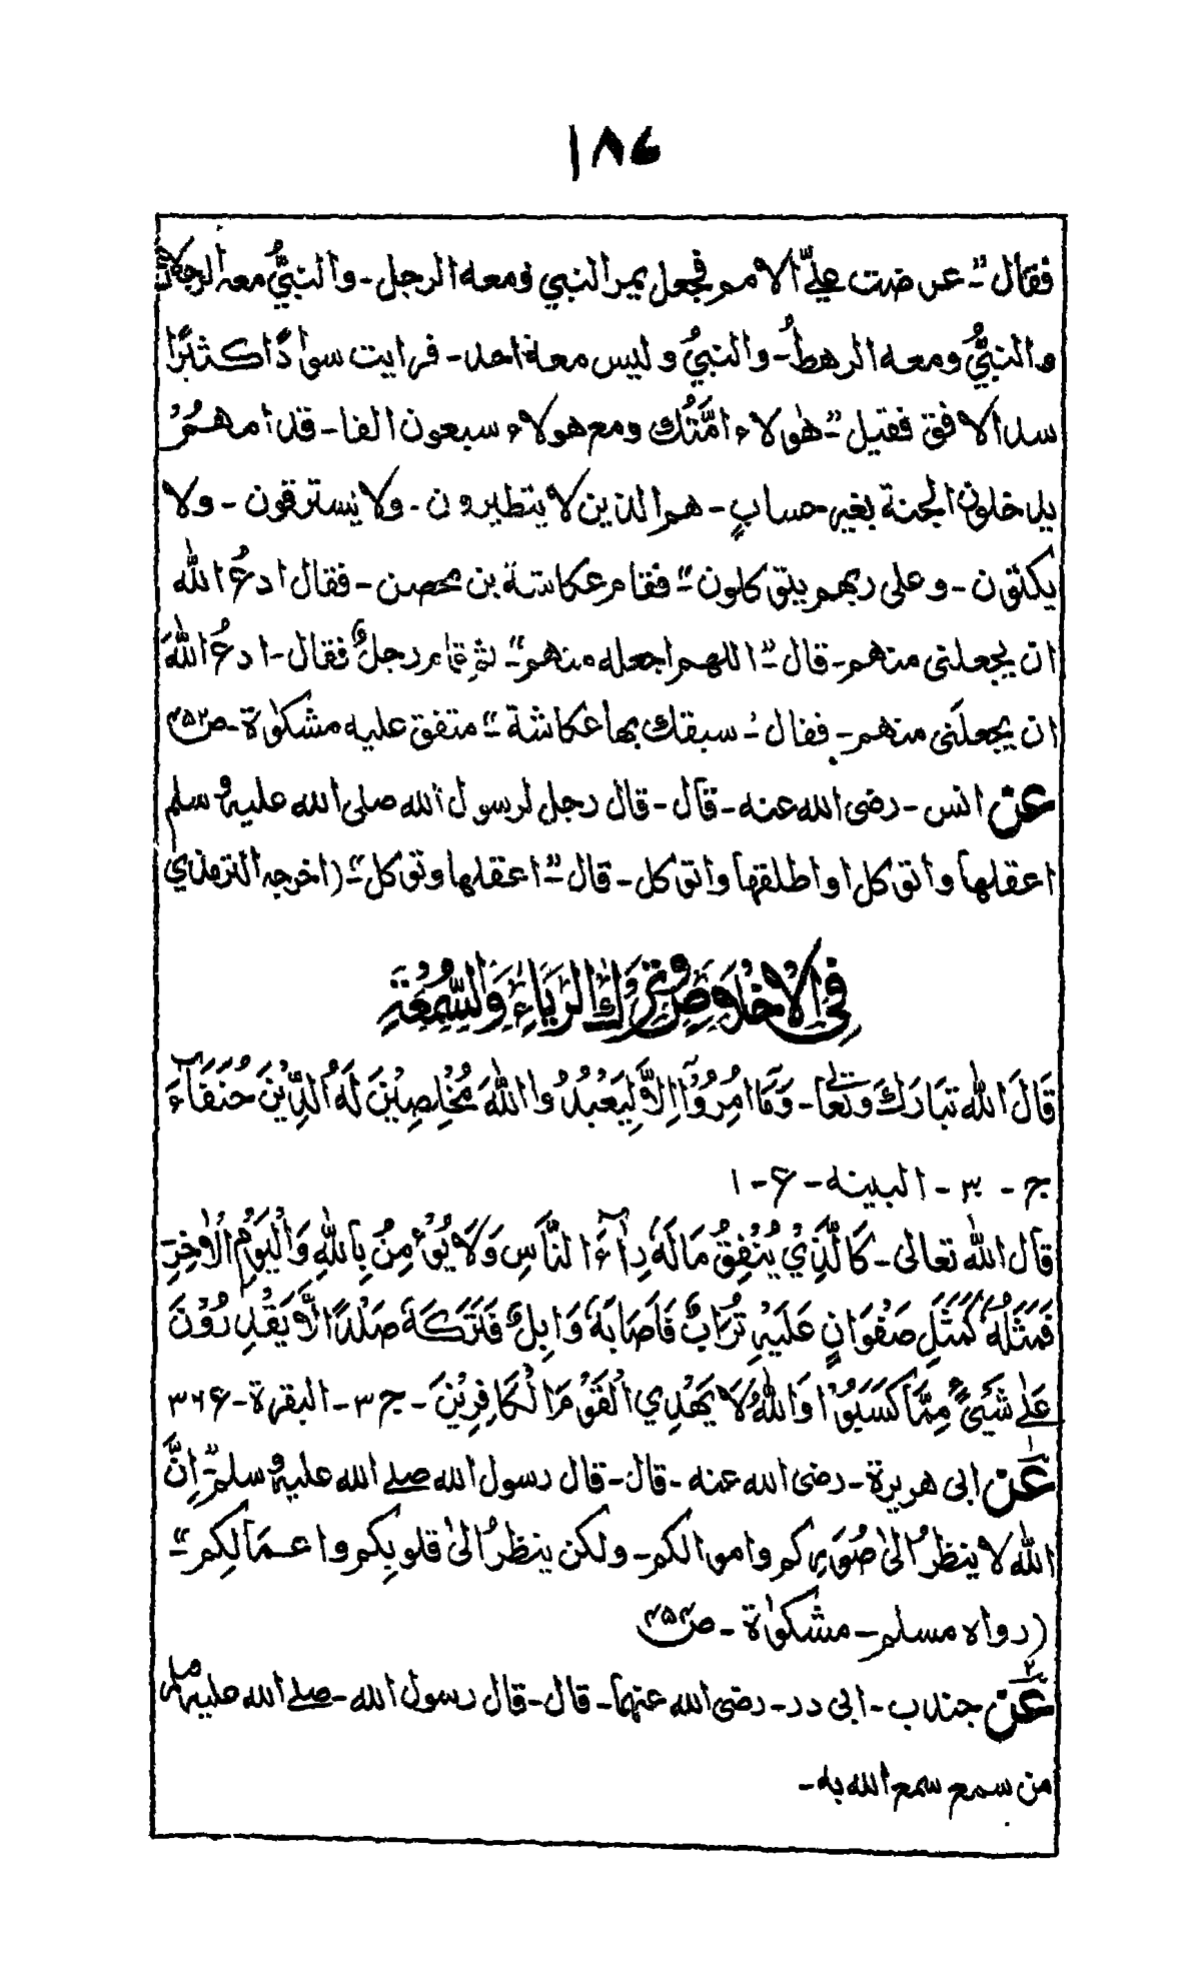 ۱۸۶
فقال "عرضت عليّ الامم فجعل يمر النبي ومعه الرجل - والنبيُّ معه الرجلان
والنبيُّ ومعه الرهطُ - والنبيُّ وليس معه احد - فرايت سوادًا كثيرًا
سد الافق فقيل "هٰولاء امَّتُك ومع هولاء سبعون الفا - قدامهمُ
يدخلون الجنة بغير حسابٍ - هم الذين لا يتطيرون - ولا يسترقون - ولا
يكتوون - وعلى ربهم يتوكلون" فقام عكاشة بن محصن - فقال ادعُ الله
ان يجعلنى منهم - قال "اللهم اجعله منهم" ثم قام رجلٌ فقال - ادعُ اللهَ
ان يجعلَنى منهم - فقال "سبقك بها عكاشة" متفق عليه مشكوٰة - ص۴۵۲
عن انس - رضى الله عنه - قال - قال رجل لرسول الله صلى الله عليه وسلم
اعقلها واتوكل او اطلقها واتوكل - قال "اعقلها وتوكل" (اخرجه الترمذي
فِى الْاِخْلَاصِ وَتَرْكِ الرِّيَاءِ وَالسُّمْعَةِ
قَالَ اللهُ تَبَارَكَ وَتَعَالٰى - وَمَا اُمِرُوْٓا اِلَّا لِيَعْبُدُوا اللهَ مُخْلِصِيْنَ لَهُ الدِّيْنَ حُنَفَآءَ
ج - ۳۰ - البينه - ۶ - ۱
قال الله تعالى - كَالَّذِيْ يُنْفِقُ مَالَهٗ رِئَآءَ النَّاسِ وَلَا يُؤْمِنُ بِاللهِ وَالْيَوْمِ الْاٰخِرِ
فَمَثَلُهٗ كَمَثَلِ صَفْوَانٍ عَلَيْهِ تُرَابٌ فَاَصَابَهٗ وَابِلٌ فَتَرَكَهٗ صَلْدًا لَّا يَقْدِرُوْنَ
عَلٰى شَيْئٍ مِّمَّا كَسَبُوْا وَاللهُ لَا يَهْدِي الْقَوْمَ الْكَافِرِيْنَ - ج۳ - البقرة - ۳۶ ۲۶۴
عَن ابى هريرة - رضى الله عنه - قال - قال رسول الله صلے الله عليه وسلم "اِنَّ
الله لا ينظرُ الىٰ صُوَرِكم واموالكم - ولكن ينظرُ الىٰ قلوبِكم واعمالِكم"
(رواه مسلم - مشكوٰة - ص۴۵۴
عَن جندب - ابى ذر - رضى الله عنهما - قال - قال رسول الله - صلے الله عليه وسلم
من سمع سمع الله به -